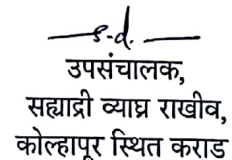 s-d.
उपसंचालक,
सह्याद्री व्याघ्र राखीव,
कोल्हापूर स्थित कराड